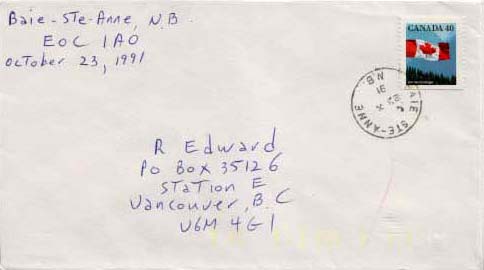 Baie-Ste-Anne, N.B.
E0C 1A0
October 23, 1991
CANADA 40
BAIE STE-ANNE
N.B.
91
R Edward
PO BOX 35126
Station E
Vancouver, B.C
V6M 4G1